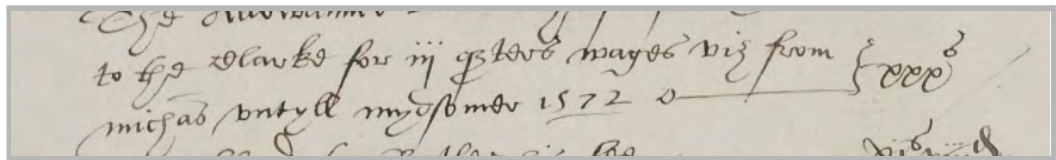 to the Clarke for iij qrters wages viz from } xxx s
michas vntyll mydsomer 1572